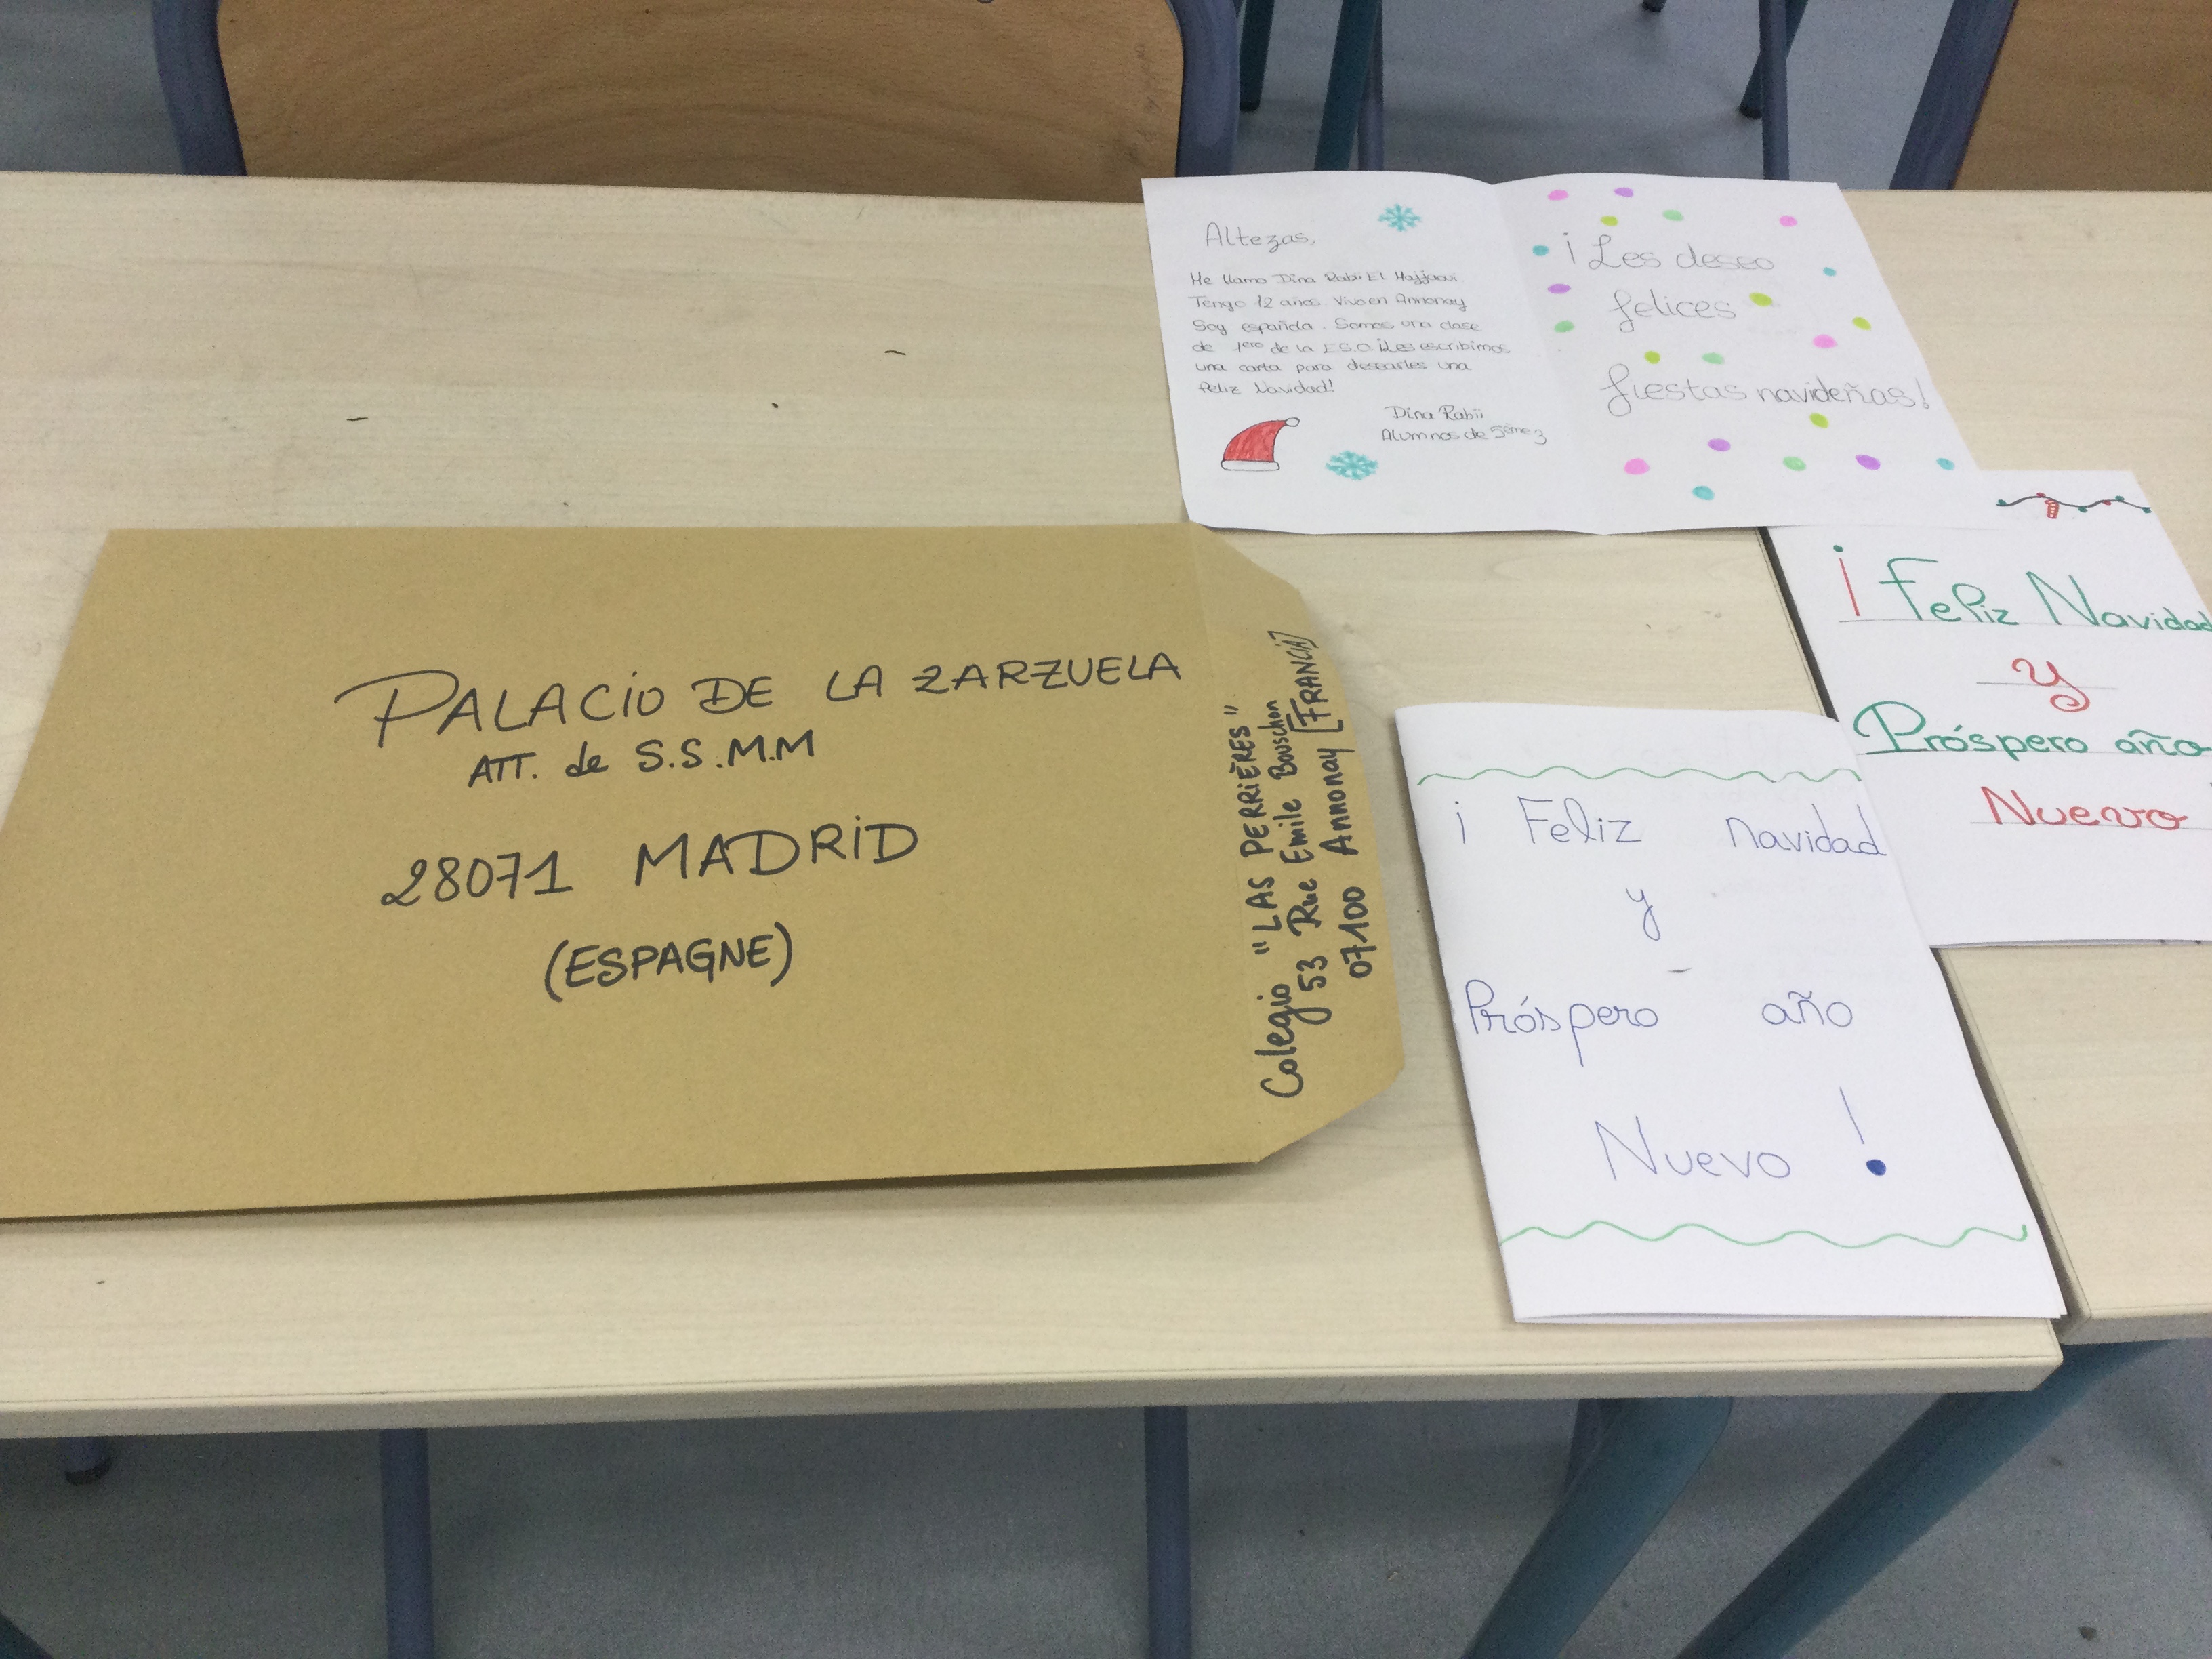 PALACIO DE LA ZARZUELA
ATT. de S.S.M.M
28071 MADRID
(ESPAGNE)
Colegio "LAS PERRIÈRES"
53 Rue Emile Bouschon
07100 Annonay [FRANCIA]
Altezas,
Me llamo Dina Rabii El Hajjaoui
Tengo 12 años. Vivo en Annonay
Soy española. Somos una clase
de 1ero de la E.S.O. ¡Les escribimos
una carta para desearles una
Feliz Navidad!
Dina Rabii
Alumnos de 5ème3
¡Les deseo
felices
fiestas navideñas!
¡Feliz Navidad
y
Próspero año
Nuevo
¡Feliz navidad
y
Próspero año
Nuevo !